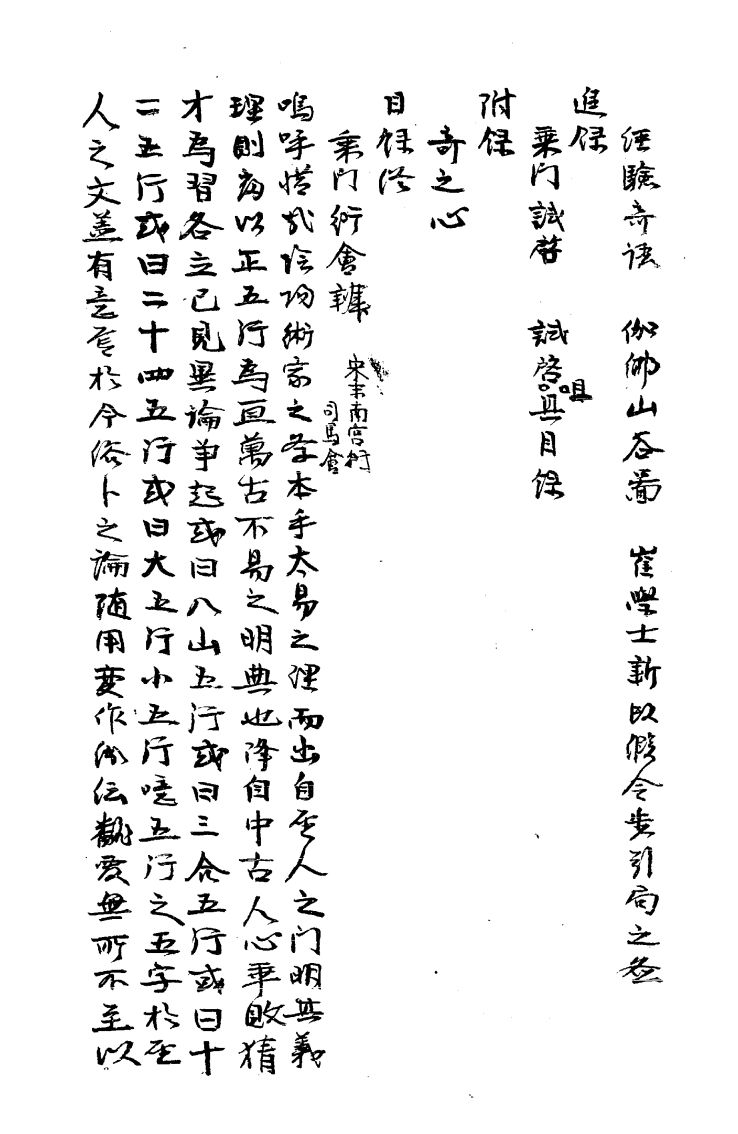 經驗奇語 伽倻山谷圖 崔學士新以假令步引局之
進條
乘门試啓 試啓咀與目錄
附條
奇之心
目錄終
乘门衍會辨 宋末南宮衍 司馬會
嗚呼惜哉陰陽術家之學本乎太易之理而出自聖人之门明其義
理則以正五行為亘萬古不易之明典也降自中古人心乖敗猜
才為習各立己見異論爭起或曰八山五行或曰三合五行或曰十
二五行或曰二十四五行或曰大五行小五行噫五行之五字於聖
人之文盖有意焉於今俗卜之論随用变作訛伝翻变無所不至以